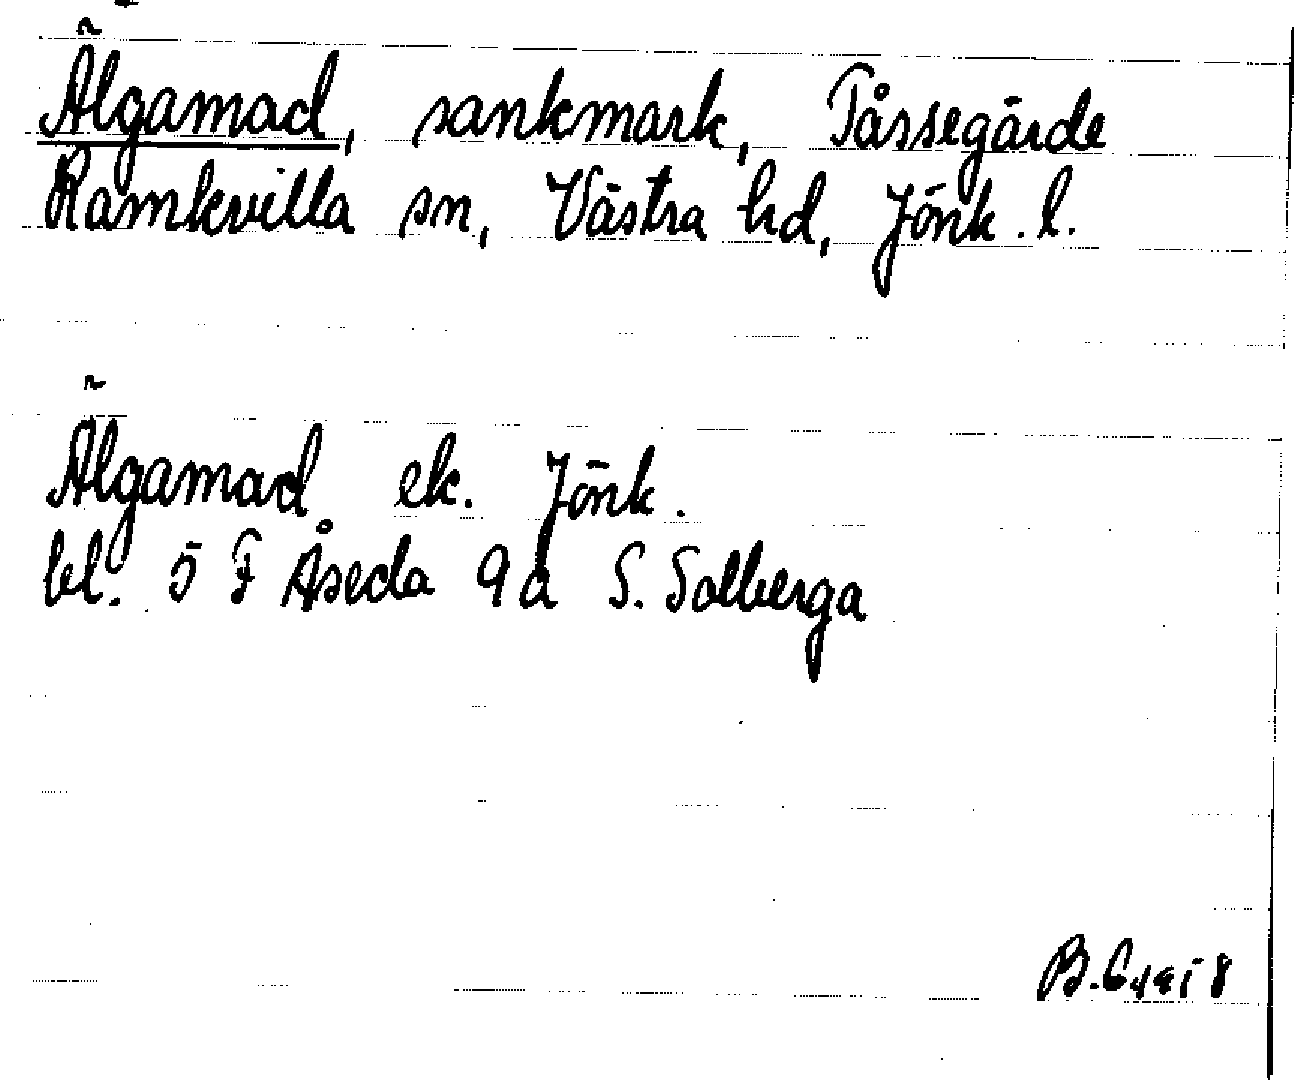 Älgamad, sankmark, Påssegärde
Ramkvilla sn, Västra hd, Jönk. l.
Älgamad ek. Jönk.
bl. 5 F Åseda 9 d S. Solberga